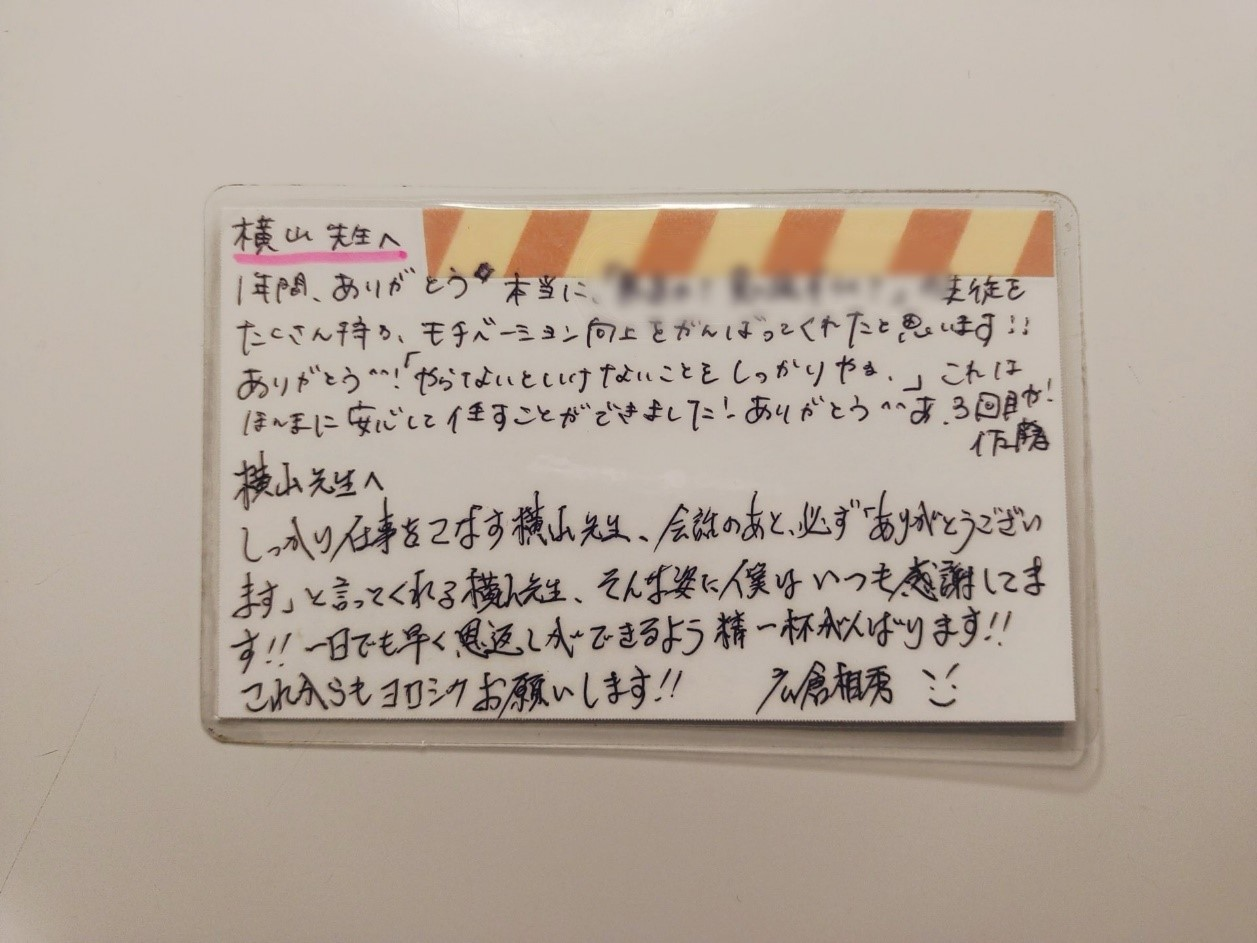 横山先生へ
1年間、ありがとう 本当に、 生徒を
たくさん持ち、モチベーション向上をがんばってくれたと思います!!
ありがとう^^!「やらないといけないことをしっかりやる。」これは
ほんまに安心して任すことができました!ありがとう^^あ、3回目か!
佐藤
横山先生へ
しっかり仕事をこなす横山先生、会話のあと、必ず「ありがとうござい
ます」と言ってくれる横山先生、そんな姿に僕はいつも感謝してま
す!!一日でも早く恩返しができるよう精一杯がんばります!!
これからもヨロシクお願いします!!